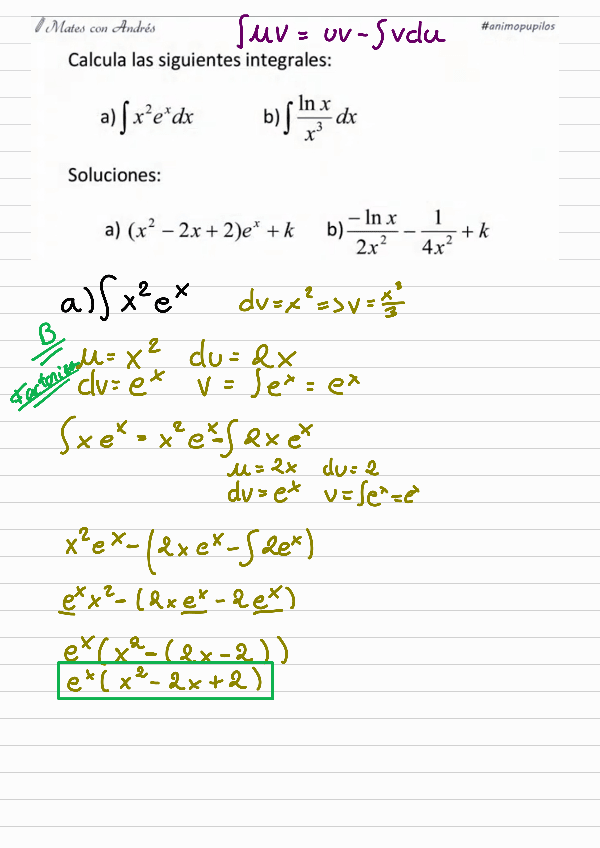 Mates con Andrés ∫uv = uv - ∫vdu #animopupilos
Calcula las siguientes integrales:
a) ∫ x² eˣ dx b) ∫ ln x / x³ dx
Soluciones:
a) (x² - 2x + 2)eˣ + k b) -ln x / 2x² - 1 / 4x² + k
a) ∫ x² eˣ dv = x² => v = x³/3
B
u = x² du = 2x
dv = eˣ v = ∫eˣ = eˣ
∫ x eˣ = x² eˣ - ∫ 2x eˣ
u = 2x du = 2
dv = eˣ v = ∫eˣ = eˣ
x² eˣ - (2x eˣ - ∫ 2eˣ)
eˣ x² - (2x eˣ - 2 eˣ)
eˣ (x² - (2x - 2))
eˣ (x² - 2x + 2)